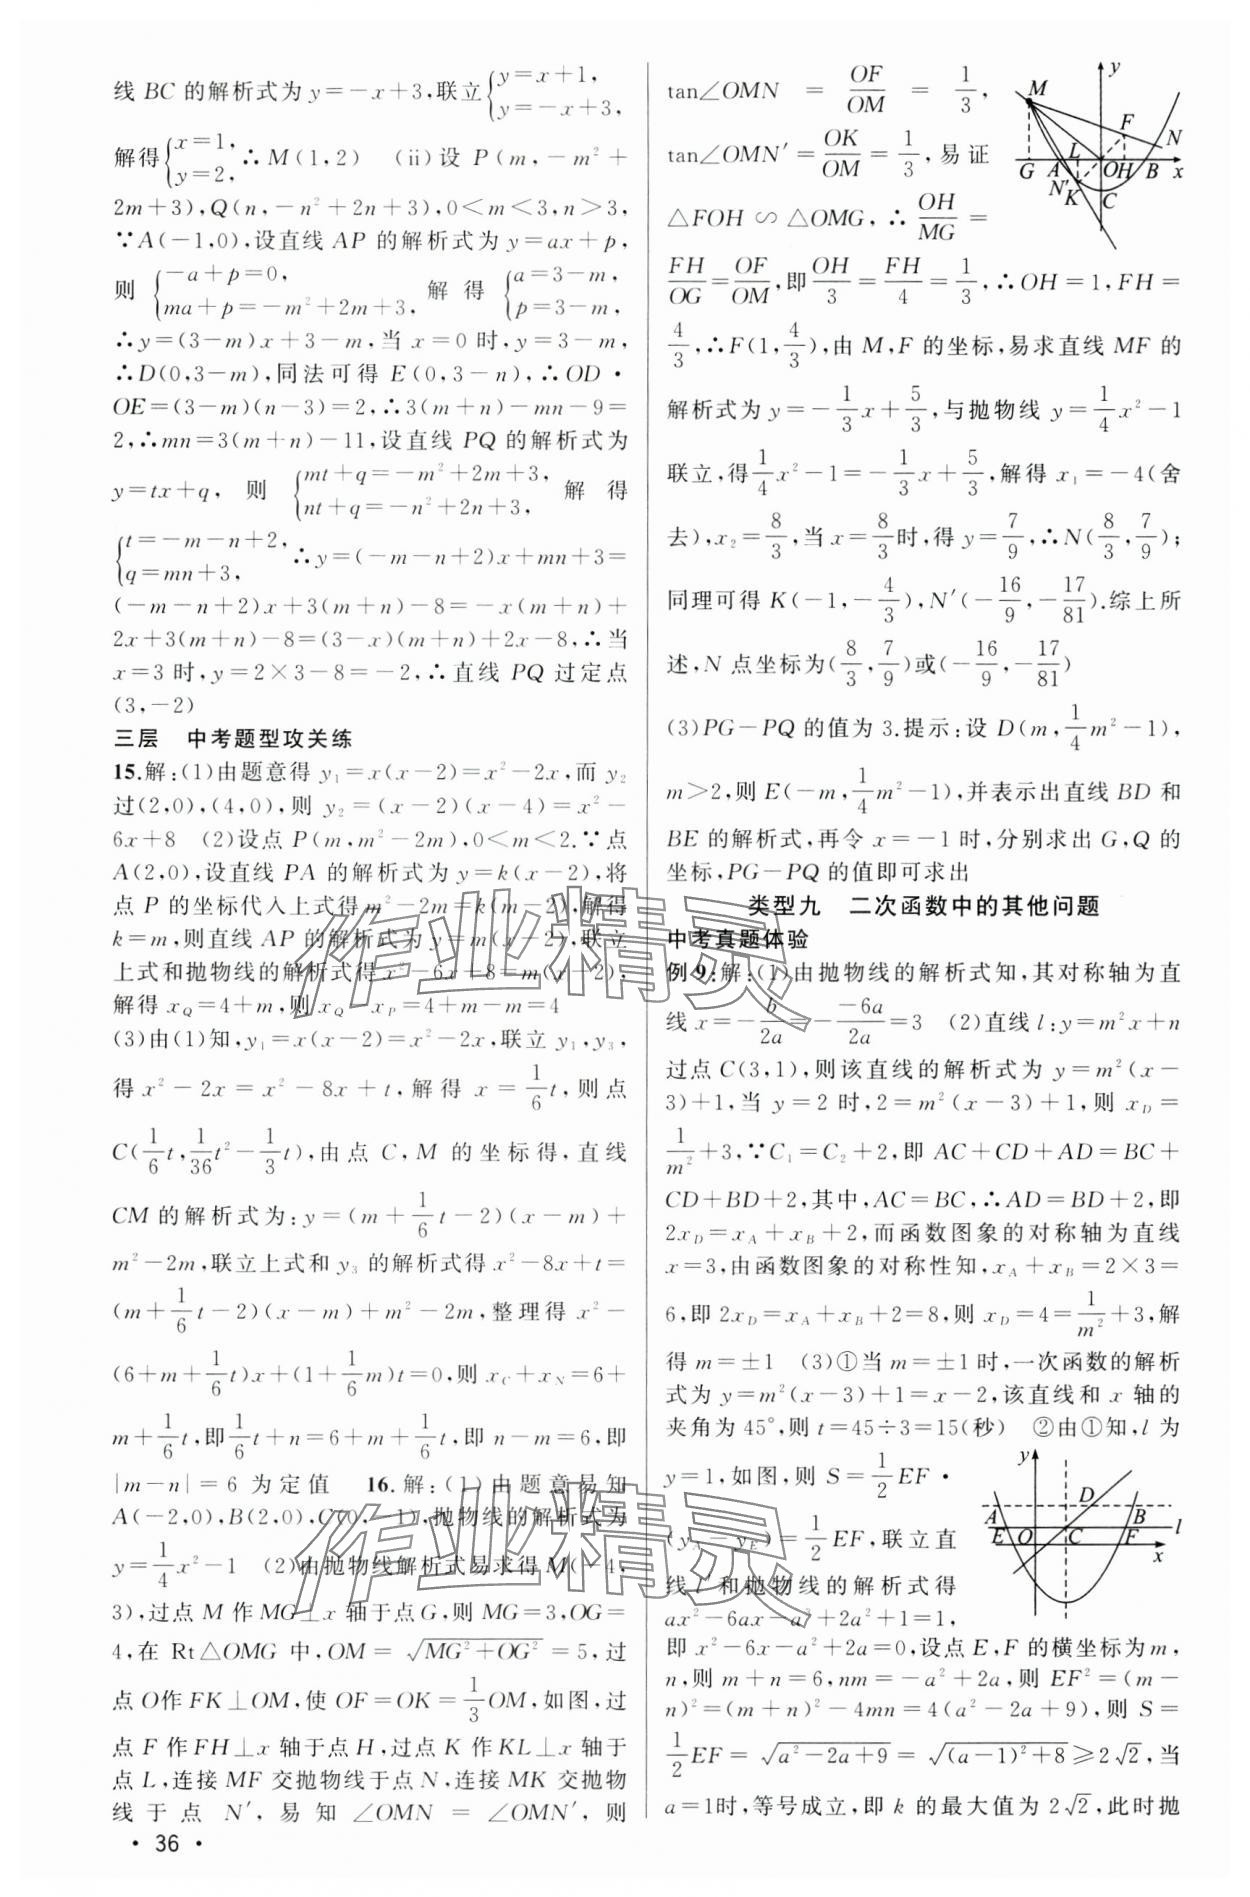 线 BC 的解析式为 y=-x+3,联立{y=x+1, y=-x+3,
解得{x=1, y=2, ∴M(1,2) (ii)设 P(m,-m²+
2m+3),Q(n,-n²+2n+3),0<m<3,n>3,
∵A(-1,0),设直线 AP 的解析式为 y=ax+p,
则 {-a+p=0, ma+p=-m²+2m+3, 解得 {a=3-m, p=3-m,
∴y=(3-m)x+3-m,当 x=0 时,y=3-m,
∴D(0,3-m),同法可得 E(0,3-n),∴OD·
OE=(3-m)(n-3)=2,∴3(m+n)-mn-9=
2,∴mn=3(m+n)-11,设直线 PQ 的解析式为
y=tx+q, 则 {mt+q=-m²+2m+3, nt+q=-n²+2n+3, 解得
{t=-m-n+2, q=mn+3, ∴y=(-m-n+2)x+mn+3=
(-m-n+2)x+3(m+n)-8=-x(m+n)+
2x+3(m+n)-8=(3-x)(m+n)+2x-8,∴当
x=3 时,y=2×3-8=-2,∴直线 PQ 过定点
(3,-2)
三层 中考题型攻关练
15.解:(1)由题意得 y₁=x(x-2)=x²-2x,而 y₂
过(2,0),(4,0),则 y₂=(x-2)(x-4)=x²-
6x+8 (2)设点 P(m,m²-2m),0<m<2.∵点
A(2,0),设直线 PA 的解析式为 y=k(x-2),将
点 P 的坐标代入上式得 m²-2m=k(m-2),解得
k=m,则直线 AP 的解析式为 y=m(x-2),联立
上式和抛物线的解析式得 x²-6x+8=m(x-2);
解得 x_Q=4+m,则 x_Q-x_P=4+m-m=4
(3)由(1)知,y₁=x(x-2)=x²-2x,联立 y₁,y₃,
得 x²-2x=x²-8x+t,解得 x=1/6t,则点
C(1/6t,1/36t²-1/3t),由点 C,M 的坐标得,直线
CM 的解析式为:y=(m+1/6t-2)(x-m)+
m²-2m,联立上式和 y₃ 的解析式得 x²-8x+t=
(m+1/6t-2)(x-m)+m²-2m,整理得 x²-
(6+m+1/6t)x+(1+1/6m)t=0,则 x_C+x_N=6+
m+1/6t,即1/6t+n=6+m+1/6t,即 n-m=6,即
|m-n|=6 为定值 16.解:(1)由题意易知
A(-2,0),B(2,0),C(0,-1),抛物线的解析式为
y=1/4x²-1 (2)由抛物线解析式易求得 M(-4,
3),过点 M 作 MG⊥x 轴于点 G,则 MG=3,OG=
4,在 Rt△OMG 中,OM=√(MG²+OG²)=5,过
点 O作 FK⊥OM,使 OF=OK=1/3OM,如图,过
点 F 作 FH⊥x 轴于点 H,过点 K 作 KL⊥x 轴于
点 L,连接 MF 交抛物线于点 N,连接 MK 交抛物
线于点 N′,易知 ∠OMN = ∠OMN′,则
· 36 ·
tan∠OMN = OF/OM = 1/3,
tan∠OMN′=OK/OM=1/3,易证
△FOH∽△OMG,∴OH/MG=
FH/OG=OF/OM,即OH/3=FH/4=1/3,∴OH=1,FH=
4/3,∴F(1,4/3),由 M,F 的坐标,易求直线 MF 的
解析式为 y=-1/3x+5/3,与抛物线 y=1/4x²-1
联立,得1/4x²-1=-1/3x+5/3,解得 x₁=-4(舍
去),x₂=8/3,当 x=8/3时,得 y=7/9,∴N(8/3,7/9);
同理可得 K(-1,-4/3),N′(-16/9,-17/81).综上所
述,N 点坐标为(8/3,7/9)或(-16/9,-17/81)
(3)PG-PQ 的值为 3.提示:设 D(m,1/4m²-1),
m>2,则 E(-m,1/4m²-1),并表示出直线 BD 和
BE 的解析式,再令 x=-1 时,分别求出 G,Q 的
坐标,PG-PQ 的值即可求出
类型九 二次函数中的其他问题
中考真题体验
例 9.解:(1)由抛物线的解析式知,其对称轴为直
线 x=-b/2a=-(-6a)/2a=3 (2)直线 l:y=m²x+n
过点 C(3,1),则该直线的解析式为 y=m²(x-
3)+1,当 y=2 时,2=m²(x-3)+1,则 x_D=
1/m²+3,∵C₁=C₂+2,即 AC+CD+AD=BC+
CD+BD+2,其中,AC=BC,∴AD=BD+2,即
2x_D=x_A+x_B+2,而函数图象的对称轴为直线
x=3,由函数图象的对称性知,x_A+x_B=2×3=
6,即 2x_D=x_A+x_B+2=8,则 x_D=4=1/m²+3,解
得 m=±1 (3)①当 m=±1 时,一次函数的解析
式为 y=m²(x-3)+1=x-2,该直线和 x 轴的
夹角为 45°,则 t=45÷3=15(秒) ②由①知,l 为
y=1,如图,则 S=1/2EF·
(y_A-y_E)=1/2EF,联立直
线 l 和抛物线的解析式得
ax²-6ax-a³+2a²+1=1,
即 x²-6x-a²+2a=0,设点 E,F 的横坐标为 m,
n,则 m+n=6,nm=-a²+2a,则 EF²=(m-
n)²=(m+n)²-4mn=4(a²-2a+9),则 S=
1/2EF=√(a²-2a+9)=√((a-1)²+8)≥2√2,当
a=1时,等号成立,即 k 的最大值为 2√2,此时抛
y
M
F
N
L
G A O H B x
N′ K C
y
D
A B
E O C F l
x
作业精灵
作业精灵